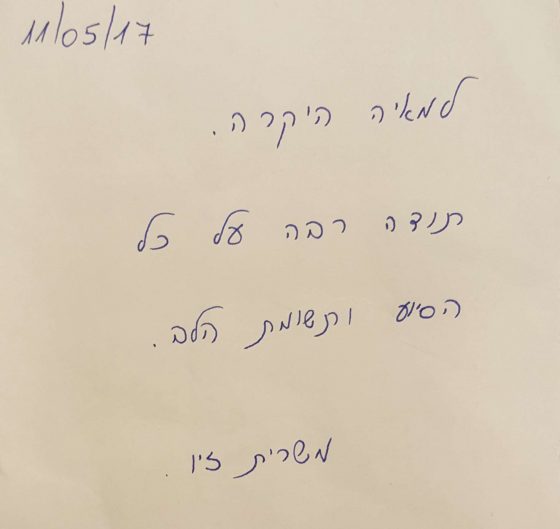 11/05/17
למאיה היקרה.
תודה רבה על כל
הסיוע ותשומת הלב.
משרית זיו.